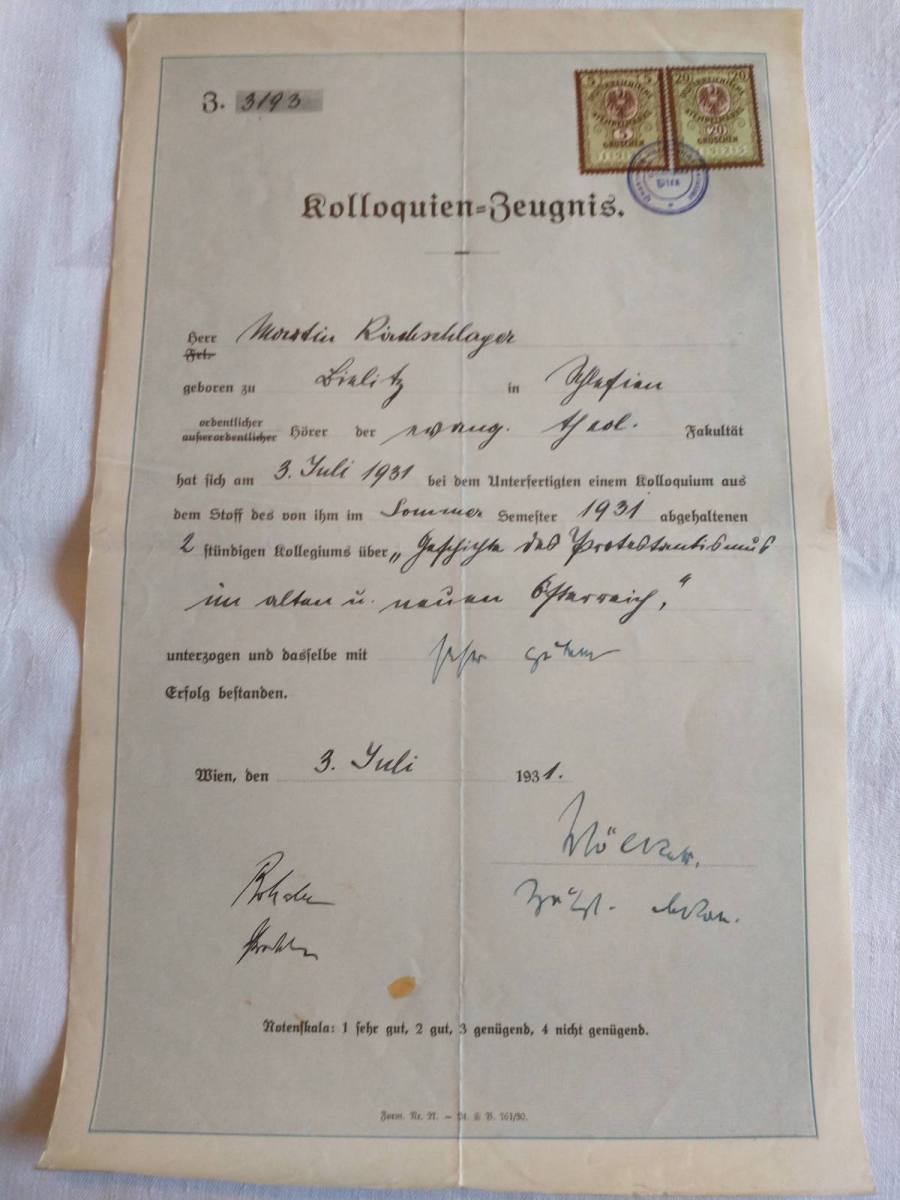 Z. 3193
5 5
ÖSTERREICHISCHE
STEMPELMARKE
5
GROSCHEN
20 20
ÖSTERREICHISCHE
STEMPELMARKE
20
GROSCHEN
Kolloquien=Zeugnis.
Herr Martin Kirchschlager
Frl.
geboren zu Bielitz in Schlesien
ordentlicher
außerordentlicher Hörer der evang. theol. Fakultät
hat sich am 3. Juli 1931 bei dem Unterfertigten einem Kolloquium aus
dem Stoff des von ihm im Sommer Semester 1931 abgehaltenen
2 stündigen Kollegiums über „Geschichte des Protestantismus
im alten u. neuen Österreich,“
unterzogen und dasselbe mit sehr gutem
Erfolg bestanden.
Wien, den 3. Juli 1931.
Völker.
Notenskala: 1 sehr gut, 2 gut, 3 genügend, 4 nicht genügend.
Form. Nr. 21. — St. & B. 761/30.